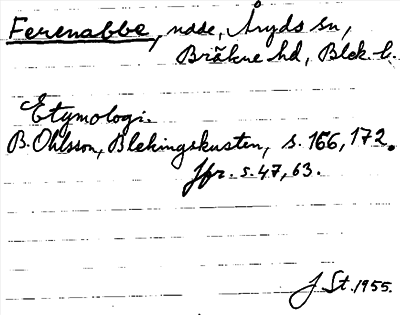 Ferenabbe, näse, Åryds sn,
Bräkne hd, Blek. l.
Etymologi.
B. Ohlsson, Blekingskusten, s. 166, 172.
Jfr. s. 47, 63.
J St. 1955.